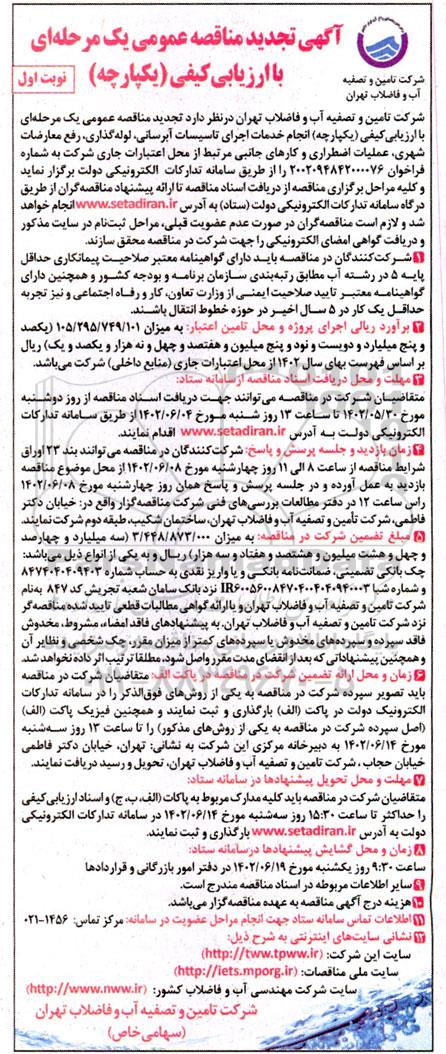 آگهی تجدید مناقصه عمومی یک مرحله‌ای
با ارزیابی کیفی (یکپارچه)
نوبت اول
شرکت تامین و تصفیه
آب و فاضلاب تهران
شرکت تامین و تصفیه آب و فاضلاب تهران درنظر دارد تجدید مناقصه عمومی یک مرحله‌ای
با ارزیابی کیفی (یکپارچه) انجام خدمات اجرای تاسیسات آبرسانی، لوله‌گذاری، رفع معارضات
شهری، عملیات اضطراری و کارهای جانبی مرتبط از محل اعتبارات جاری شرکت به شماره
فراخوان ۲۰۰۲۰۹۴۸۴۲۰۰۰۰۷۶ را از طریق سامانه تدارکات الکترونیکی دولت برگزار نماید
و کلیه مراحل برگزاری مناقصه از دریافت اسناد مناقصه تا ارائه پیشنهاد مناقصه‌گران از طریق
درگاه سامانه تدارکات الکترونیکی دولت (ستاد) به آدرس www.setadiran.ir انجام خواهد
شد و لازم است مناقصه‌گران در صورت عدم عضویت قبلی، مراحل ثبت‌نام در سایت مذکور
و دریافت گواهی امضای الکترونیکی را جهت شرکت در مناقصه محقق سازند.
۱ شرکت‌کنندگان در مناقصه باید دارای گواهینامه معتبر صلاحیت پیمانکاری حداقل
پایه ۵ در رشته آب مطابق رتبه‌بندی سازمان برنامه و بودجه کشور و همچنین دارای
گواهینامه معتبر تایید صلاحیت ایمنی از وزارت تعاون، کار و رفاه اجتماعی و نیز تجربه
حداقل یک کار در ۵ سال اخیر در حوزه خطوط انتقال باشند.
۲ برآورد ریالی اجرای پروژه و محل تامین اعتبار: به میزان ۱۰۵/۲۹۵/۷۴۹/۱۰۱ (یکصد
و پنج میلیارد و دویست و نود و پنج میلیون و هفتصد و چهل و نه هزار و یکصد و یک) ریال
بر اساس فهرست بهای سال ۱۴۰۲ از محل اعتبارات جاری (منابع داخلی) شرکت می‌باشد.
۳ مهلت و محل دریافت اسناد مناقصه ازسامانه ستاد:
متقاضیان شرکت در مناقصه می‌توانند جهت دریافت اسناد مناقصه از روز دوشنبه
مورخ ۱۴۰۲/۰۵/۳۰ تا ساعت ۱۳ روز شنبه مورخ ۱۴۰۲/۰۶/۰۴ از طریق سامانه تدارکات
الکترونیکی دولت به آدرس www.setadiran.ir اقدام نمایند.
۴ زمان بازدید و جلسه پرسش و پاسخ: شرکت‌کنندگان در مناقصه می‌توانند بند ۲۳ اوراق
شرایط مناقصه از ساعت ۸ الی ۱۱ روز چهارشنبه مورخ ۱۴۰۲/۰۶/۰۸ از محل موضوع مناقصه
بازدید به عمل آورده و در جلسه پرسش و پاسخ همان روز چهارشنبه مورخ ۱۴۰۲/۰۶/۰۸
راس ساعت ۱۲ در دفتر مطالعات بررسی‌های فنی شرکت مناقصه‌گزار واقع در: خیابان دکتر
فاطمی، شرکت تأمین و تصفیه آب و فاضلاب تهران، ساختمان شکیب، طبقه دوم شرکت نمایند.
۵ مبلغ تضمین شرکت در مناقصه: به میزان ۳/۴۴۸/۸۷۳/۰۰۰ (سه میلیارد و چهارصد
و چهل و هشت میلیون و هشتصد و هفتاد و سه هزار) ریال و به یکی از انواع ذیل می‌باشد:
چک بانکی تضمینی، ضمانت‌نامه بانکی و یا واریز نقدی به حساب شماره ۸۴۷۴۰۴۰۴۰۹۴۰۳
و شماره شبا IR۶۰۰۵۶۰۰۸۴۷۰۴۰۰۴۰۴۰۹۴۰۰۳ نزد بانک سامان شعبه تجریش کد ۸۴۷ به‌نام
شرکت تامین و تصفیه آب و فاضلاب تهران و یا ارائه گواهی مطالبات قطعی تایید شده مناقصه‌گر
نزد شرکت تامین و تصفیه آب و فاضلاب تهران. به پیشنهادهای فاقد امضاء، مشروط، مخدوش
فاقد سپرده و سپرده‌های مخدوش یا سپرده‌های کمتر از میزان مقرر، چک شخصی و نظایر آن
و همچنین پیشنهاداتی که بعد از انقضای مدت مقرر واصل شود، مطلقا ترتیب اثر داده نخواهد شد.
۶ زمان و محل ارائه تضمین شرکت در مناقصه در پاکت الف: متقاضیان شرکت در مناقصه
باید تصویر سپرده شرکت در مناقصه به یکی از روش‌های فوق‌الذکر را در سامانه تدارکات
الکترونیک دولت در پاکت (الف) بارگذاری و ثبت نمایند و همچنین فیزیک پاکت (الف)
(اصل سپرده شرکت در مناقصه به یکی از روش‌های مذکور) را تا ساعت ۱۳ روز سه‌شنبه
مورخ ۱۴۰۲/۰۶/۱۴ به دبیرخانه مرکزی این شرکت به نشانی: تهران، خیابان دکتر فاطمی
خیابان حجاب، شرکت تامین و تصفیه آب و فاضلاب تهران، تحویل و رسید دریافت نمایند.
۷ مهلت و محل تحویل پیشنهادها در سامانه ستاد:
متقاضیان شرکت در مناقصه باید کلیه مدارک مربوط به پاکات (الف، ب، ج) و اسناد ارزیابی کیفی
را حداکثر تا ساعت ۱۵:۳۰ روز سه‌شنبه مورخ ۱۴۰۲/۰۶/۱۴ در سامانه تدارکات الکترونیکی
دولت به آدرس www.setadiran.ir بارگذاری و ثبت نمایند.
۸ زمان و محل گشایش پیشنهادها درسامانه ستاد:
ساعت ۹:۳۰ روز یکشنبه مورخ ۱۴۰۲/۰۶/۱۹ در دفتر امور بازرگانی و قراردادها
۹ سایر اطلاعات مربوطه در اسناد مناقصه مندرج است.
۱۰ هزینه درج آگهی مناقصه به عهده مناقصه‌گزار می‌باشد.
۱۱ اطلاعات تماس سامانه ستاد جهت انجام مراحل عضویت در سامانه: مرکز تماس: ۱۴۵۶-۰۲۱
۱۲ نشانی سایت‌های اینترنتی به شرح ذیل:
سایت این شرکت: (http://tww.tpww.ir)
سایت ملی مناقصات: (http://iets.mporg.ir)
سایت شرکت مهندسی آب و فاضلاب کشور: (http://www.nww.ir)
شرکت تامین و تصفیه آب و فاضلاب تهران
(سهامی خاص)